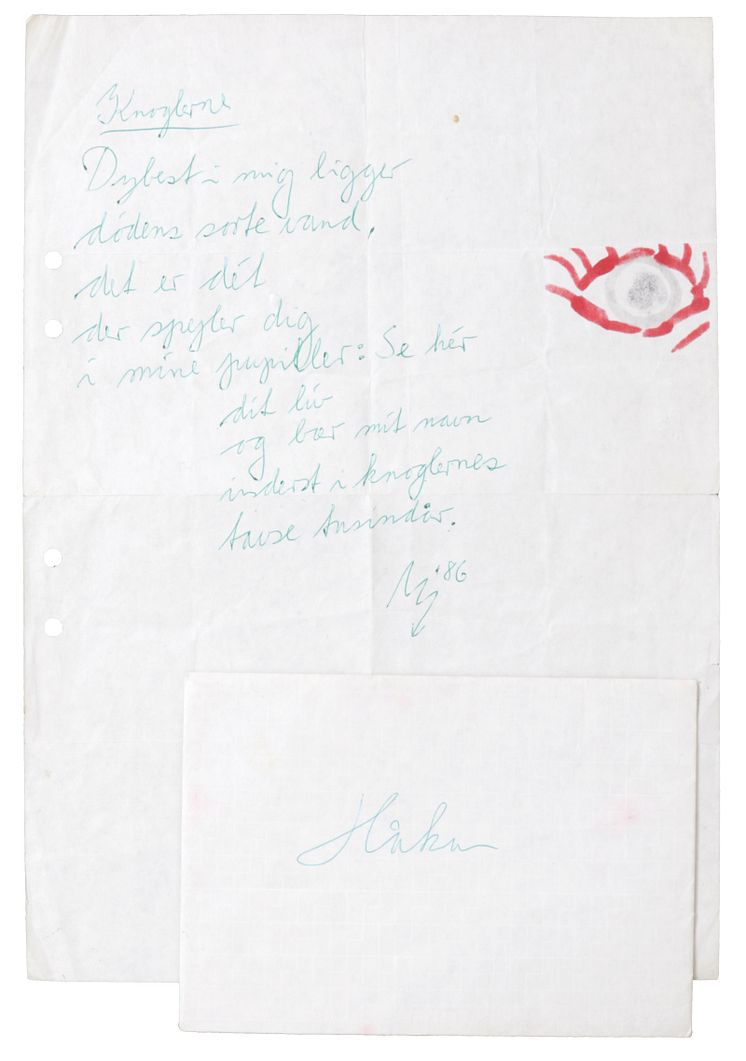 Knoglerne
Dybest i mig ligger
dødens sorte vand,
det er dét
der spejler dig
i mine pupiller: Se hér
dit liv
og bær mit navn
inderst i knoglernes
tavse tusindår.
'86
Håkan